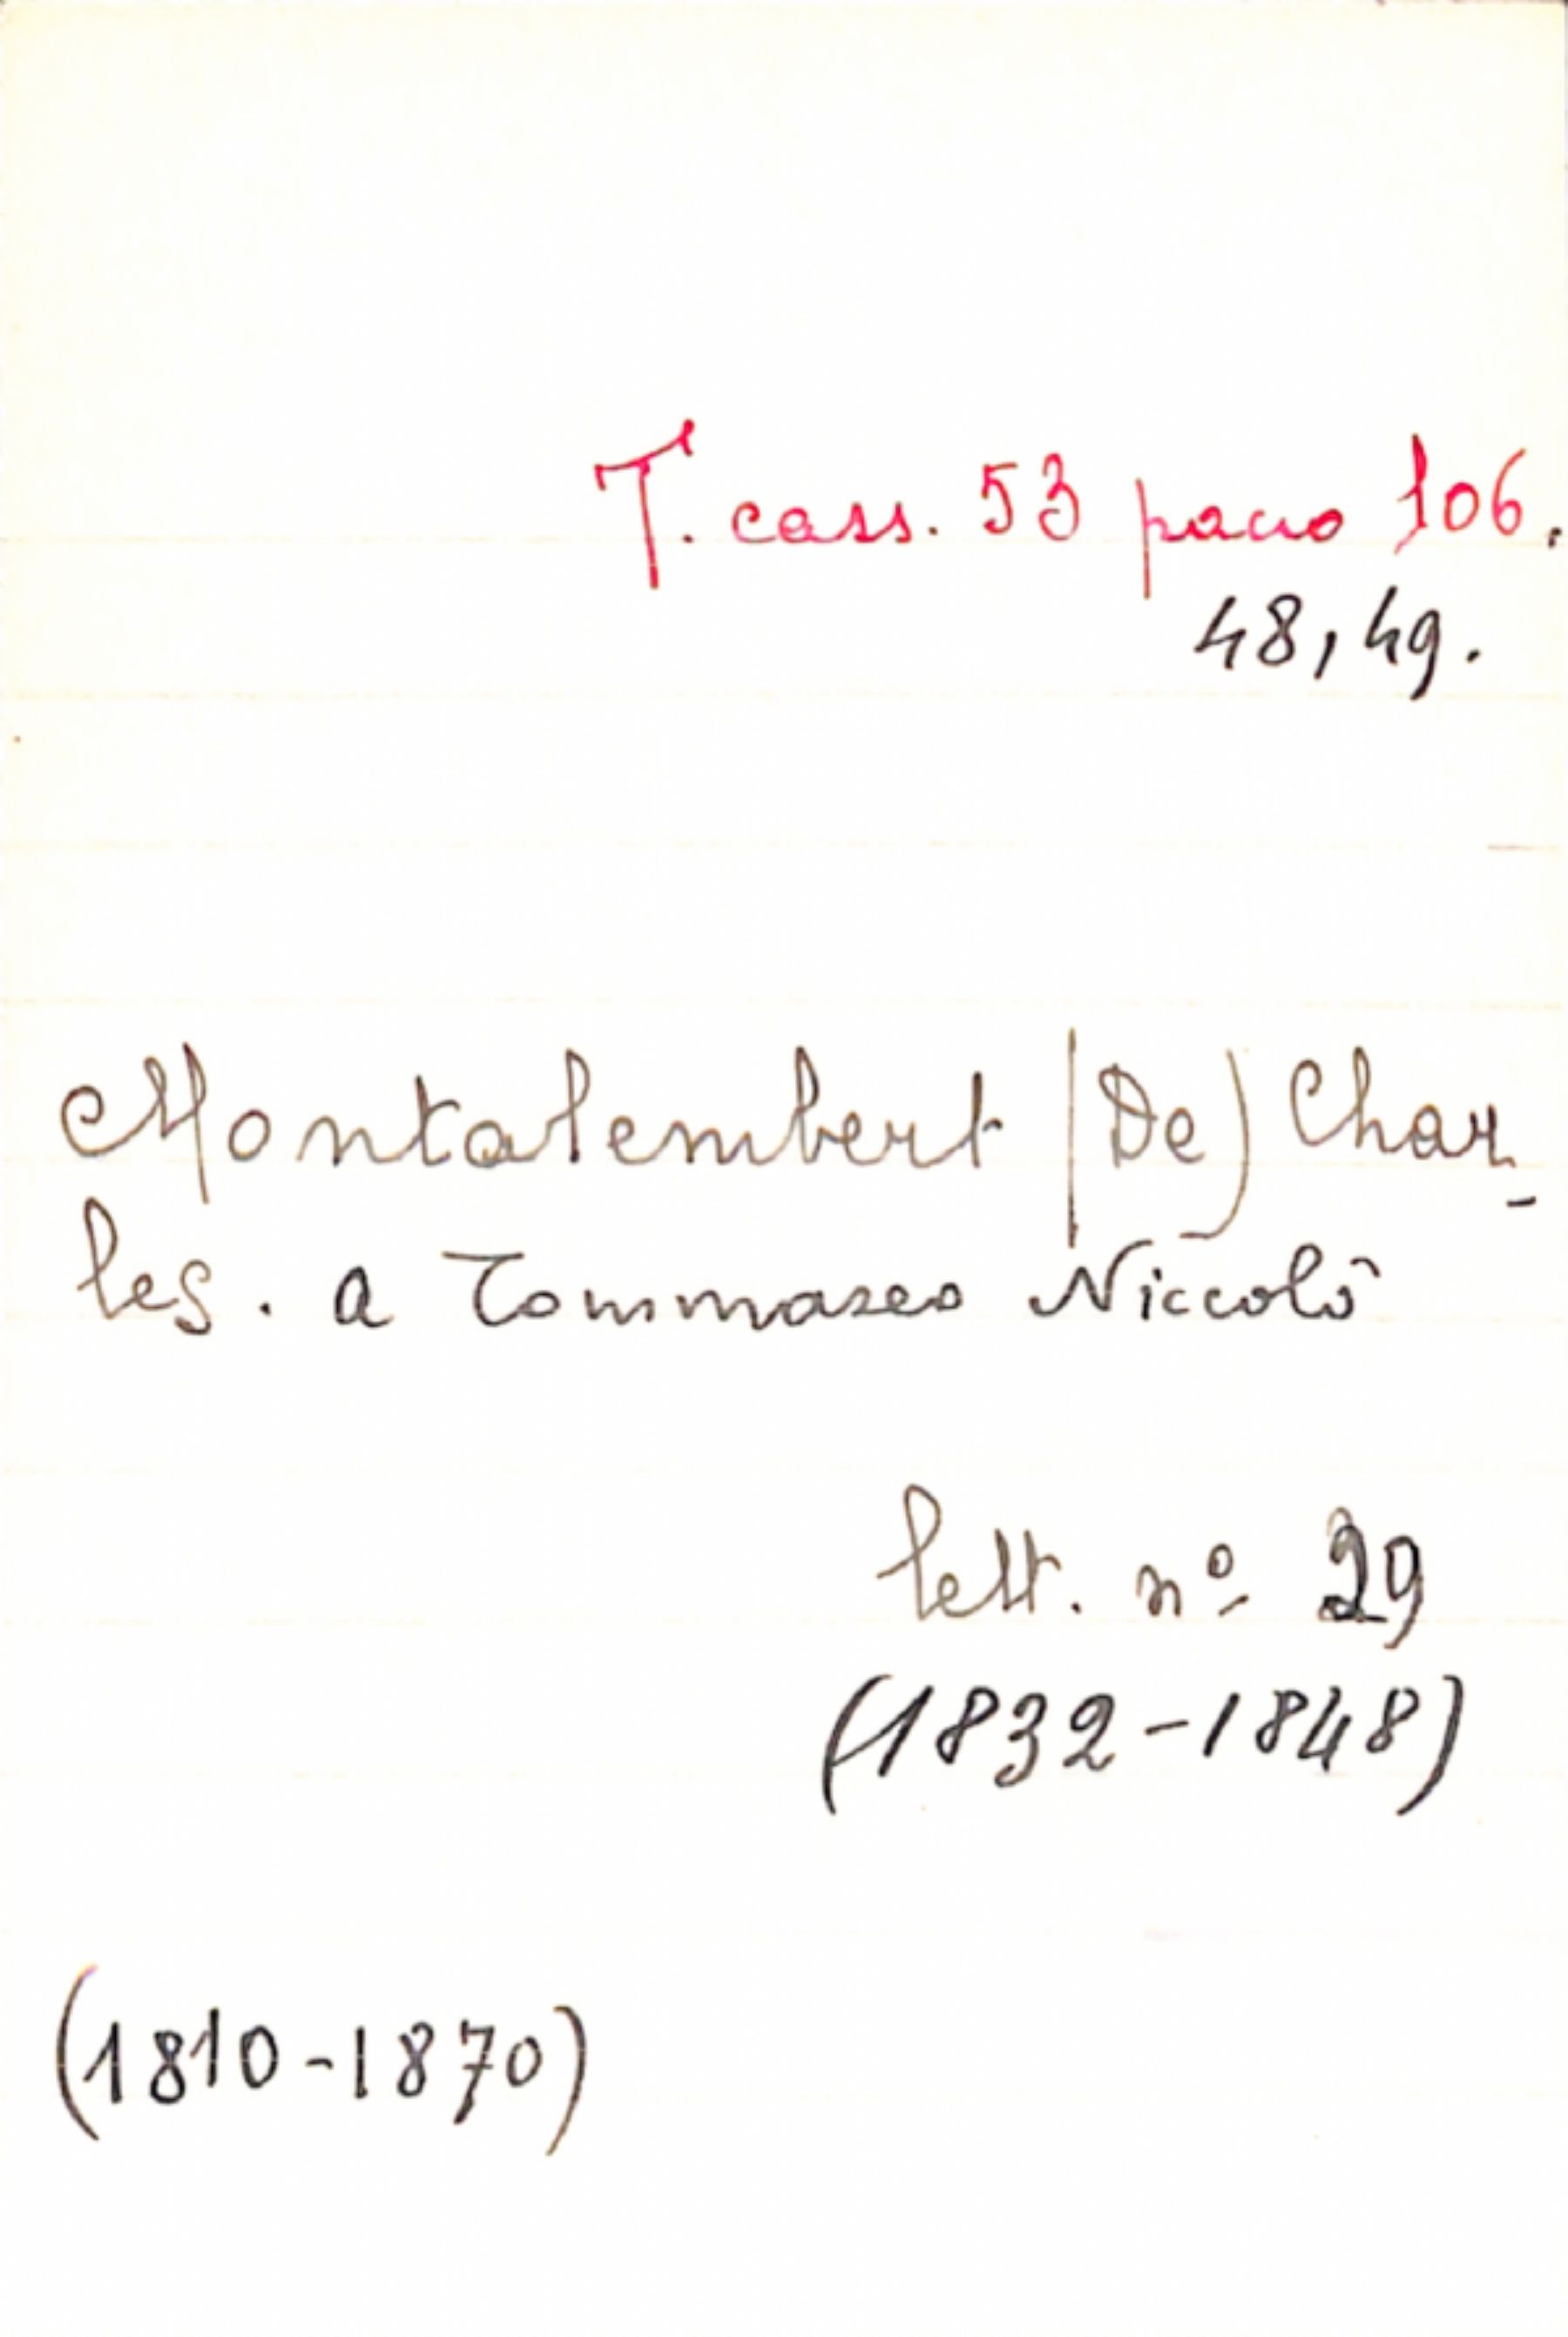 T. cass. 53 pacco 106.
48, 49.
Montalembert (De) Char-
les. a Tommaseo Niccolò
lett. nº 29
(1832-1848)
(1810-1870)